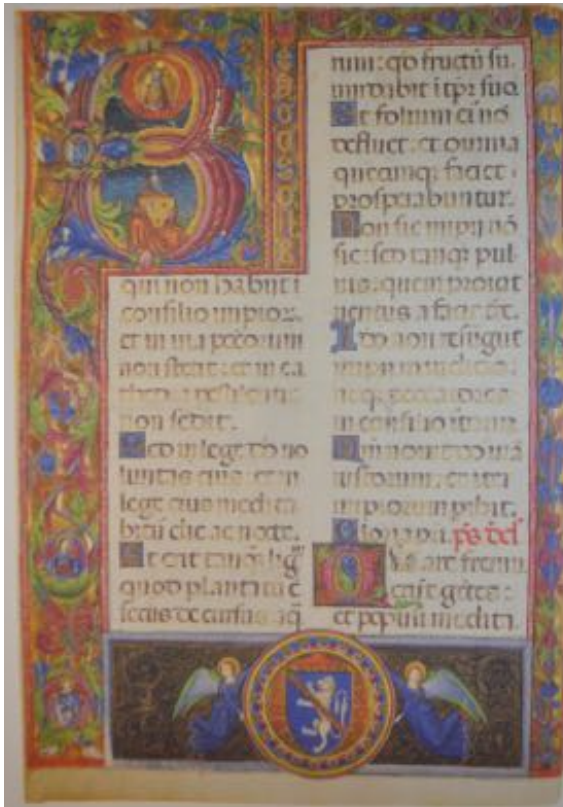 B
qui non habiit i
consilio impioꝝ.
et in uia pccōrum
non stetit: et in ca
thedra pestilentie
non sedit.
Sed in lege dñi uo
luntas eius: et in
lege eius medita
bitur die ac nocte.
Et erit tanq̃ lig̃
quod plantatū ē
secus decursus aq̃
rum: qđ fructū su
um dabit ī tpr suo
Et folium ei nō
defluet: et omnia
quecumq; faciet
prosperabuntur.
Non sic impii nō
sic: sed tanq̃ pul
uis: quem proicit
uentus a facie
Ideo non resurgūt
impii in iudicio:
neq; peccatores
in consilio iustoꝝ
Qm̄ nouit dn̄s uiā
iustorum: et iter
impiorum pibit.
Gloria pr̄i. ps̄
Quare fremu
gētes:
et populi meditati